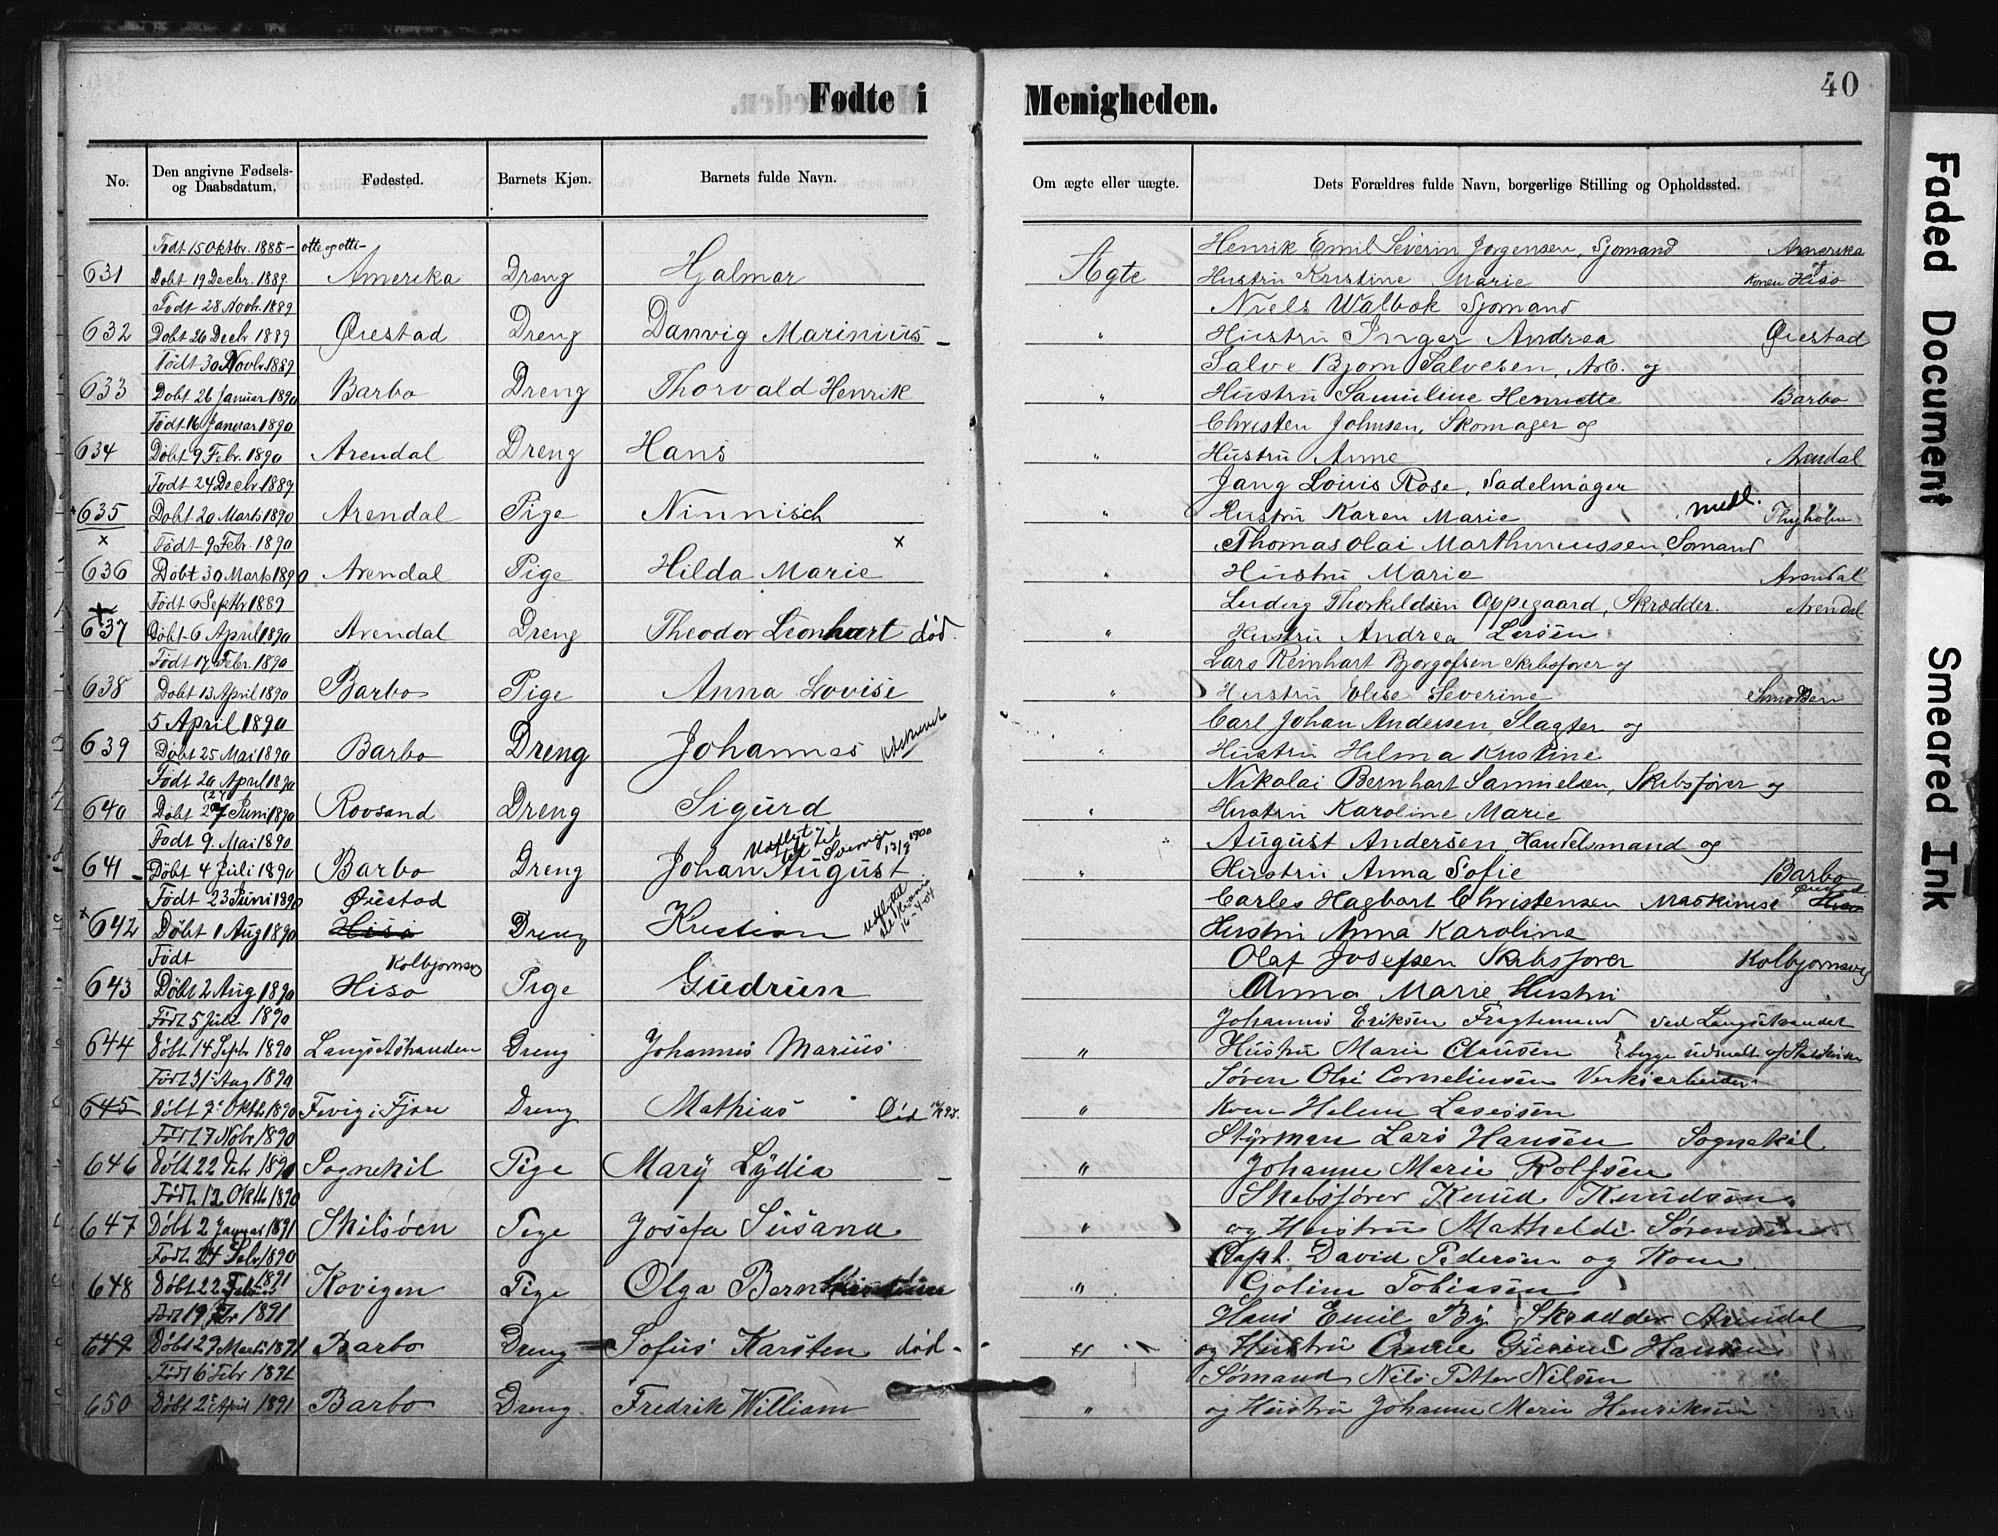 Fødte i Menigheden.
40
No. Den angivne Fødsels- og Daabsdatum. Fødested. Barnets Kjøn. Barnets fulde Navn. Om ægte eller uægte. Dets Forældres fulde Navn, borgerlige Stilling og Opholdssted.
Født 15 Oktbr. 1885 - otte og otte - Henrik Emil Severin Jorgensen, Sjomand Amerika
631 Døbt 19 Decbr. 1889. Amerika Dreng Hjalmar Ægte Hustru Kristine Marie Konen Hisø
Født 28 Novbr. 1889 Niels Walbok Sjomand
632 Døbt 26 Decbr 1889 Øiestad Dreng Danvig Marinius " Hustru Inger Andrea Øiestad
Født 30 Novbr 1889 Salve Bjorn Salvesen, Arb. og
633 Døbt 26 Januar 1890 Barbo Dreng Thorvald Henrik " Hustru Samuline Henriette Barbo
Født 16 Januar 1890 Christen Johnsen, Skomager og
634 Døbt 9 Febr. 1890 Arendal Dreng Hans " Hustru Anne Arendal
Født 24 Decbr 1889 Jang Louis Rose, Sadelmager
635 Døbt 20 Marts 1890 Arendal Pige Ninnisch " Hustru Karen Marie medl.
x Født 9 Febr. 1890 x Thomas Olai Marthinussen, Somand
636 Døbt 30 Marts 1890 Arendal Pige Hilda Marie " Hustru Marie Arendal
Født 6 Septbr 1889 Ludvig Thorkildsen Oppegaard, Skrædder. Arendal
637 Døbt 6 April 1890 Arendal Dreng Theodor Leonhart død. " Hustru Andrea Larsen
Født 17 Febr. 1890 Lars Reinhart Bjorgofsen Skibsforer og
638 Døbt 13 April 1890 Barbo Pige Anna Lovise " Hustru Elise Severine
5 April 1890 Carl Johan Andersen, Slagter og
639 Døbt 25 Mai 1890 Barbo Dreng Johannes Udskrevet " Hustru Hilma Kristine
Født 20 April 1890 Nikolai Bernhart Samuelsen, Skibsfører og
640 Døbt 27 Juni 1890 Rovsand Dreng Sigurd " Hustru Karoline Marie
Født 9. Mai 1890 Udflyt til Sverige 13/9 1900 August Andersen, Handelsmand og
641 Døbt 4 Juli 1890 Barbo Dreng Johan August " Hustru Anna Sofie Barbo
Født 23 Juni 1890 Øiestad Carles Hagbart Christensen Maskinist Hisø
642 Døbt 1 Aug 1890 Hisø Dreng Kristian Udflyttet til Kr.ania 16-4-04 Hustru Anna Karoline
Født Kolbjornsvg Olaf Josefsen Skibsforer Kolbjornsvig
643 Døbt 2 Aug. 1890 Hiso Pige Gudrun Anna Marie, Hustru
Født 5 Juli 1890 Johannes Eriksen Fragtemand ved Langsetvandet
644 Døbt 14 Septr 1890 Dreng Johannes Marius " Hustru Marie Clausen begge udmeldt af Statskirken
Født 31 Aug 1890 Søren Olai Corneliusen Verksarbeider
645 Døbt 7 Oktbr 1890 Fevig i Fjære Dreng Mathias Død " Kone Helene Lasessen
Født 7 Nobr 1890 Styrman Lars Hansen Sognekil
646 Døbt 22 Debr 1890 Sognekil Pige Mary Lydia " Johanne Marie Rolfsen
Født 12 Oktbr 1890 Skibsfører Knud Knudsen
647 Døbt 2 Januar 1891 Skilsøen Pige Josefa Susana " og Hustru Mathelde Sørensen
Født 24 1890 Capt. David Pedersen og Kone
648 Døbt 22 Febr 1891 Kovigen Pige Olga " Goline Tobiasen
Født 19 1891 Hans Emil By Skrædder Arendal
649 Døbt 29 Marts 1891 Barbo Dreng Sofus Karsten død - " og Hustru Anne Hansen
Født 6 Febr 1891 Sømand Nils Petter Nilsen
650 Døbt 25 April 1891 Barbo Dreng Fredrik William " og Hustru Johanne Marie Henriksen
Faded Document
Smeared Ink